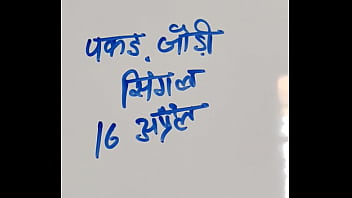 पकड़. जोड़ी
सिंगल
16 अप्रैल